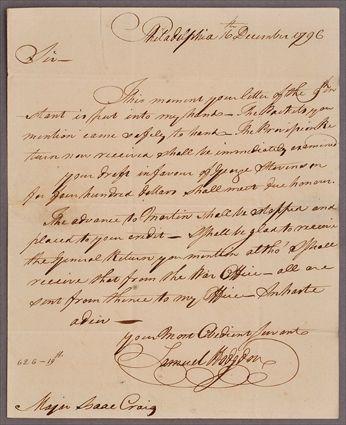 Philadelphia 16th December 1796
Sir —
This moment your letter of the 9th In
stant is put into my hand — The Packets you
mention came safely to hand — The Provision Re
turn now received shall be immediately examined
your draft in favour of George Stevenson
for four hundred dollars shall meet due honour.
The advance to Martin shall be stopped and
placed to your credit — I shall be glad to receive
the General Return you mention altho' I shall
receive that from the War Office — all are
sent from thence to my Office — In haste
adieu —
your Most Obedient Servant
Samuel Hodgdon
Major Isaac Craig